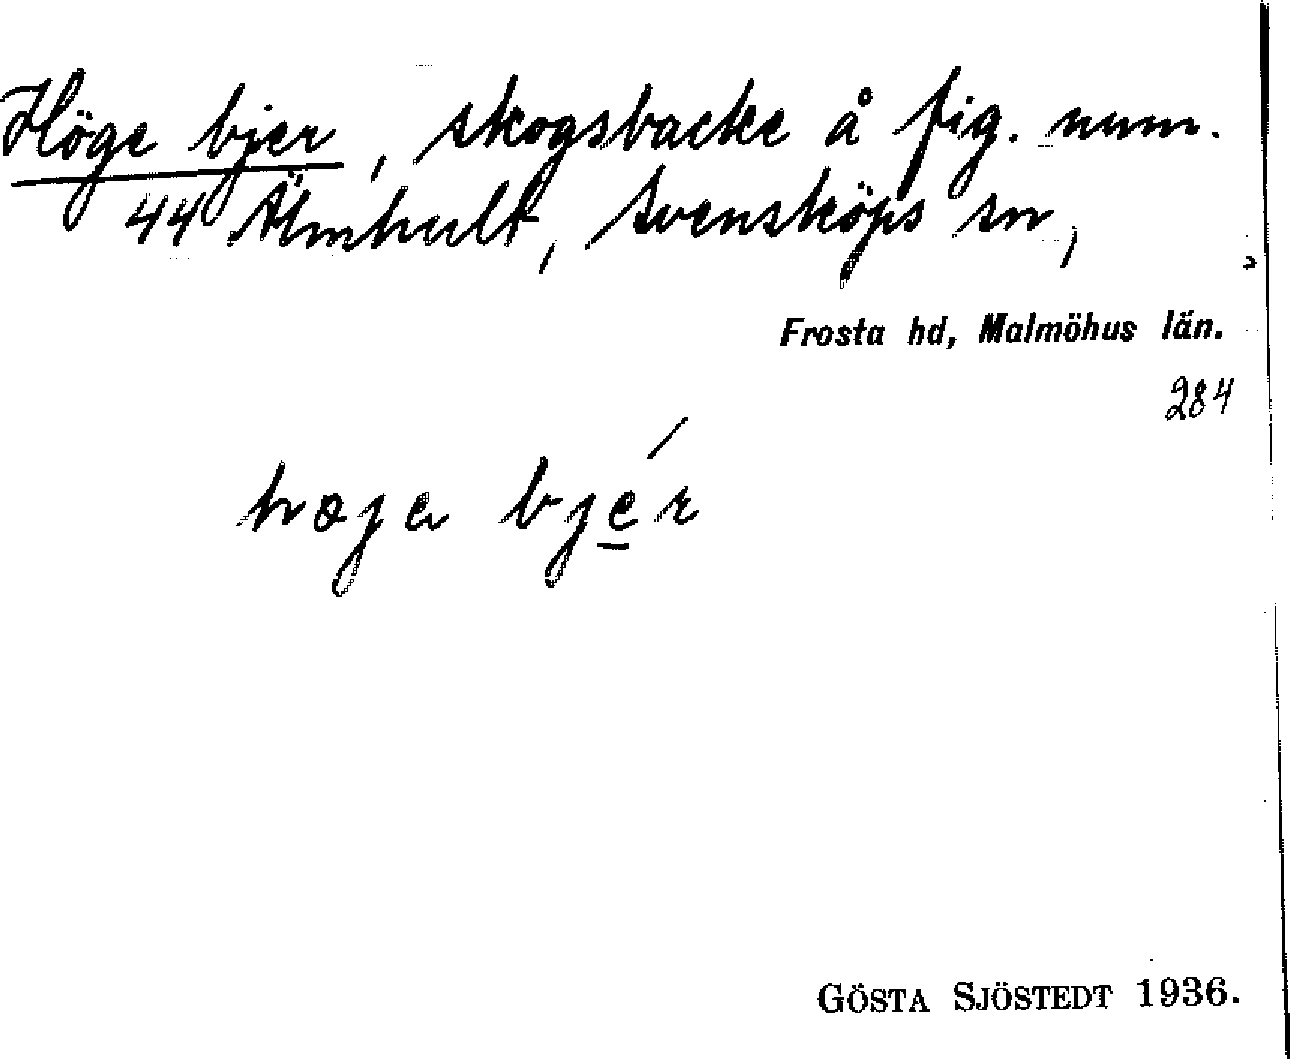 Höge bjer, skogsbacke å fig. num.
44 Älmhult, Svensköps sn,
Frosta hd, Malmöhus län.
284
bjér
GÖSTA SJÖSTEDT 1936.